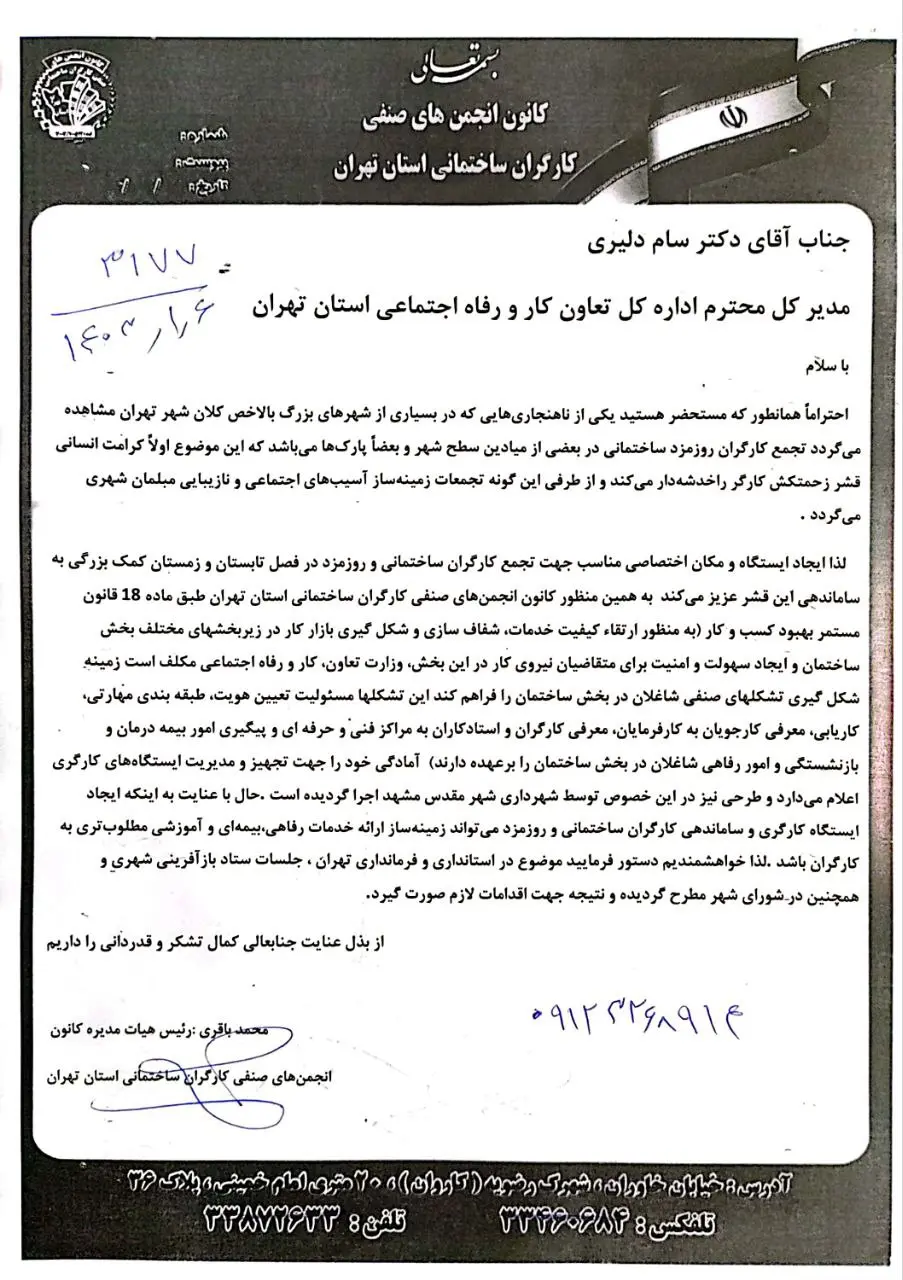 بسمه تعالی
کانون انجمن های صنفی
کارگران ساختمانی استان تهران
شماره:
پیوست:
تاریخ: / /
جناب آقای دکتر سام دلیری
۳۱۷۷
مدیر کل محترم اداره کل تعاون کار و رفاه اجتماعی استان تهران
با سلام
احتراماً همانطور که مستحضر هستید یکی از ناهنجاری‌هایی که در بسیاری از شهرهای بزرگ بالاخص کلان شهر تهران مشاهده
می‌گردد تجمع کارگران روزمزد ساختمانی در بعضی از میادین سطح شهر و بعضاً پارک‌ها می‌باشد که این موضوع اولاً کرامت انسانی
قشر زحمتکش کارگر راخدشه‌دار می‌کند و از طرفی این گونه تجمعات زمینه‌ساز آسیب‌های اجتماعی و نازیبایی مبلمان شهری
می‌گردد .
لذا ایجاد ایستگاه و مکان اختصاصی مناسب جهت تجمع کارگران ساختمانی و روزمزد در فصل تابستان و زمستان کمک بزرگی به
ساماندهی این قشر عزیز می‌کند به همین منظور کانون انجمن‌های صنفی کارگران ساختمانی استان تهران طبق ماده 18 قانون
مستمر بهبود کسب و کار (به منظور ارتقاء کیفیت خدمات، شفاف سازی و شکل گیری بازار کار در زیربخشهای مختلف بخش
ساختمان و ایجاد سهولت و امنیت برای متقاضیان نیروی کار در این بخش، وزارت تعاون، کار و رفاه اجتماعی مکلف است زمینه
شکل گیری تشکلهای صنفی شاغلان در بخش ساختمان را فراهم کند این تشکلها مسئولیت تعیین هویت، طبقه بندی مهارتی،
کاریابی، معرفی کارجویان به کارفرمایان، معرفی کارگران و استادکاران به مراکز فنی و حرفه ای و پیگیری امور بیمه درمان و
بازنشستگی و امور رفاهی شاغلان در بخش ساختمان را برعهده دارند) آمادگی خود را جهت تجهیز و مدیریت ایستگاه‌های کارگری
اعلام می‌دارد و طرحی نیز در این خصوص توسط شهرداری شهر مقدس مشهد اجرا گردیده است .حال با عنایت به اینکه ایجاد
ایستگاه کارگری و ساماندهی کارگران ساختمانی و روزمزد می‌تواند زمینه‌ساز ارائه خدمات رفاهی،بیمه‌ای و آموزشی مطلوب‌تری به
کارگران باشد .لذا خواهشمندیم دستور فرمایید موضوع در استانداری و فرمانداری تهران ، جلسات ستاد بازآفرینی شهری و
همچنین در شورای شهر مطرح گردیده و نتیجه جهت اقدامات لازم صورت گیرد.
از بذل عنایت جنابعالی کمال تشکر و قدردانی را داریم
محمد باقری :رئیس هیات مدیره کانون
انجمن‌های صنفی کارگران ساختمانی استان تهران
آدرس : خیابان خاوران ، شهرک رضویه ( کاروان ) ، ۲۰ متری امام خمینی ، پلاک ۳۶
تلفکس : ۳۳۴۶۰۶۸۴ تلفن : ۳۳۸۷۲۶۳۳